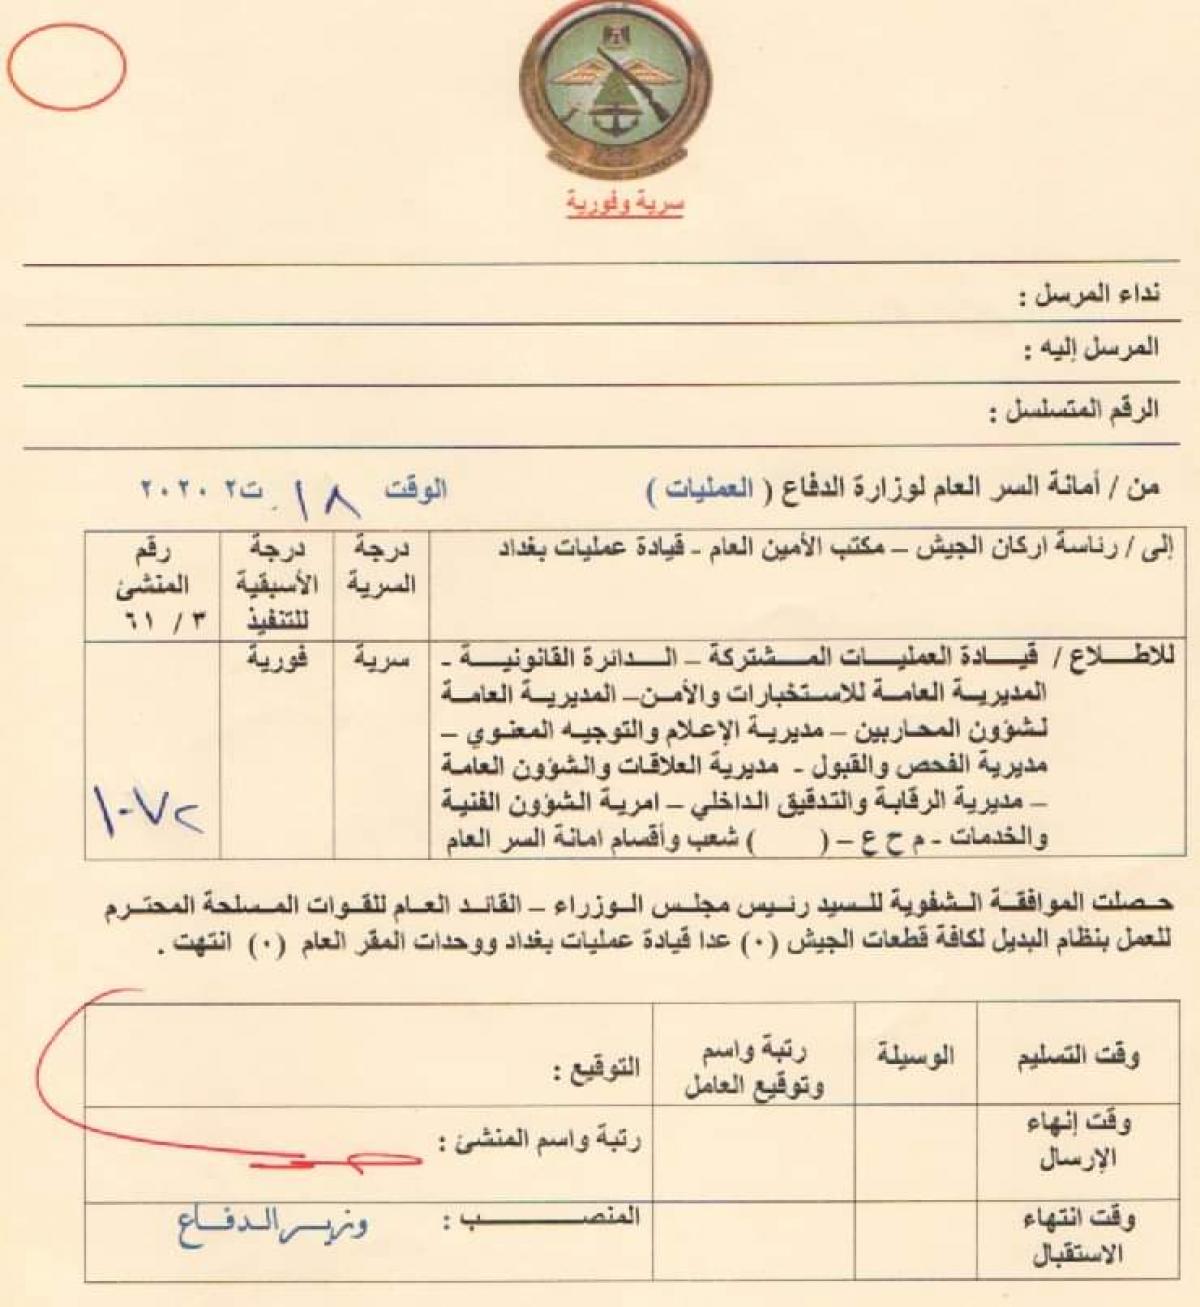 سرية وفورية
نداء المرسل :
المرسل إليه :
الرقم المتسلسل :
من / أمانة السر العام لوزارة الدفاع ( العمليات ) الوقت ١٨ ت٢ ٢٠٢٠
إلى / رئاسة اركان الجيش – مكتب الأمين العام - قيادة عمليات بغداد
درجة السرية
درجة الأسبقية للتنفيذ
رقم المنشئ
٣ / ٦١
للاطلاع / قيادة العمليات المشتركة – الدائرة القانونية -
المديرية العامة للاستخبارات والأمن– المديرية العامة
لشؤون المحاربين – مديرية الإعلام والتوجيه المعنوي –
مديرية الفحص والقبول - مديرية العلاقات والشؤون العامة
– مديرية الرقابة والتدقيق الداخلي – امرية الشؤون الفنية
والخدمات - م ح ع – ( ) شعب وأقسام امانة السر العام
سرية
فورية
١٠٧٢
حصلت الموافقة الشفوية للسيد رئيس مجلس الوزراء – القائد العام للقوات المسلحة المحترم
للعمل بنظام البديل لكافة قطعات الجيش (٠) عدا قيادة عمليات بغداد ووحدات المقر العام (٠) انتهت .
وقت التسليم
الوسيلة
رتبة واسم
وتوقيع العامل
التوقيع :
وقت إنهاء
الإرسال
رتبة واسم المنشئ :
وقت انتهاء
الاستقبال
المنصب : وزير الدفاع